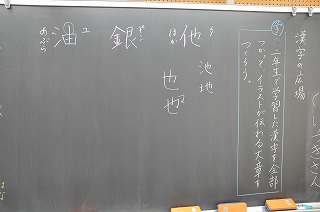 漢字の広場
め 二年生で学習した漢字を全部
つかって、イラストが伝わる文章を
つくろう。
他
ほか
池地
也也
銀
ギン
油
ユ
あぶら